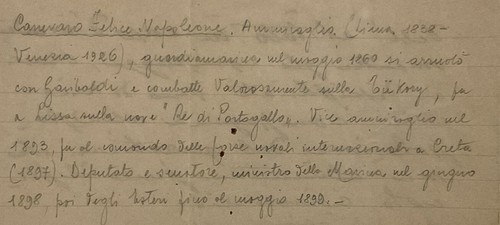 Canevaro Felice Napoleone. Ammiraglio (Lima 1838-
Venezia 1926), guardiamarina nel maggio 1860 si arruolò
con Garibaldi e combatte Valorosamente sulla Tükory, fu
a Lissa sulla nave "Re di Portogallo". Vice ammiraglio nel
1893, fu al comando delle forze navali internazionali a Creta
(1897). Deputato e senatore, ministro della Marina nel giugno
1898, poi degli Esteri fino al maggio 1899.-